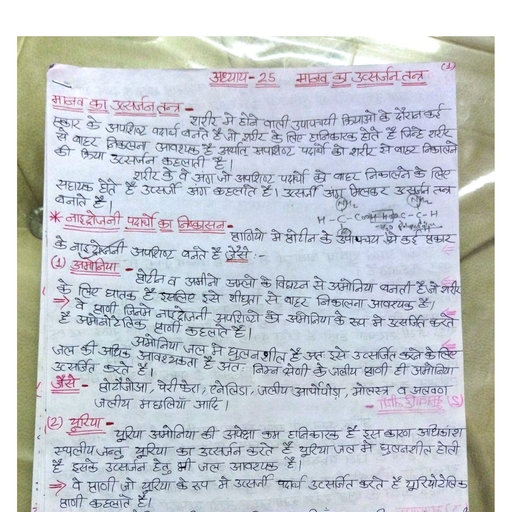 (1)
अध्याय - 25 मानव का उत्सर्जन तन्त्र
मानव का उत्सर्जन तन्त्र -
शरीर में होने वाली उपापचयी क्रियाओं के दौरान कई
प्रकार के अपशिष्ट पदार्थ बनते हैं जो शरीर के लिए हानिकारक होते हैं जिन्हें शरीर
से बाहर निकालना आवश्यक है अर्थात अपशिष्ट पदार्थों को शरीर से बाहर निकालने
की क्रिया उत्सर्जन कहलाती है।
शरीर के वे अंग जो अपशिष्ट पदार्थों को बाहर निकालने के लिए
सहायक होते हैं उत्सर्जी अंग कहलाते हैं। उत्सर्जी अंग मिलकर उत्सर्जन तन्त्र
बनाते हैं।
* नाइट्रोजनी पदार्थों का निष्कासन -
प्राणियों में प्रोटीन के उपापचय से कई प्रकार
के नाइट्रोजनी अपशिष्ट बनते हैं जैसे :-
(1) अमोनिया -
प्रोटीन व अमीनो अम्लों के विघटन से अमोनिया बनती है जो शरीर
के लिए घातक है इसलिए इसे शीघ्रता से बाहर निकालना आवश्यक है।
⇒ वे प्राणी जिनमें नाइट्रोजनी अपशिष्टों को अमोनिया के रूप में उत्सर्जित करते
हैं अमोनोटेलिक प्राणी कहलाते हैं।
अमोनिया जल में घुलनशील है अतः इसे उत्सर्जित करने के लिए
जल की अधिक आवश्यकता है अतः निम्न श्रेणी के जलीय प्राणी ही अमोनिया
उत्सर्जित करते हैं।
जैसे - प्रोटोजोआ, पोरीफेरा, एनेलिडा, जलीय आर्थोपोडा, मोलस्का व अलवण
जलीय मछलियाँ आदि।
(2) यूरिया -
यूरिया अमोनिया की अपेक्षा कम हानिकारक है इस कारण अधिकांश
स्थलीय जन्तु यूरिया का उत्सर्जन करते हैं यूरिया जल में घुलनशील होती
है इसके उत्सर्जन हेतु भी जल आवश्यक है।
⇒ वे प्राणी जो यूरिया के रूप में उत्सर्जी पदार्थ उत्सर्जित करते हैं यूरियोटेलिक
प्राणी कहलाते हैं।